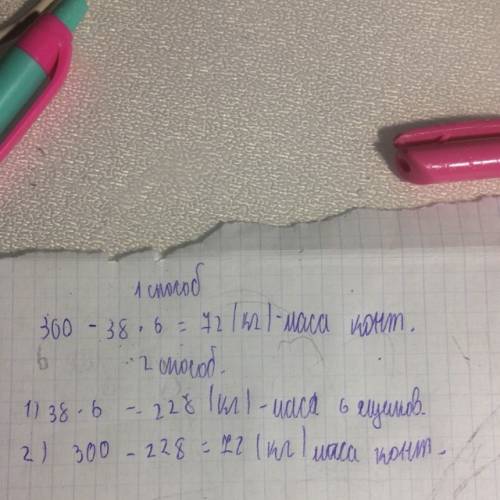 1 способ
300 - 38 · 6 = 72 (кг) - маса конт.
2 способ.
1) 38 · 6 = 228 (кг) - маса 6 ящиков.
2) 300 - 228 = 72 (кг) маса конт.